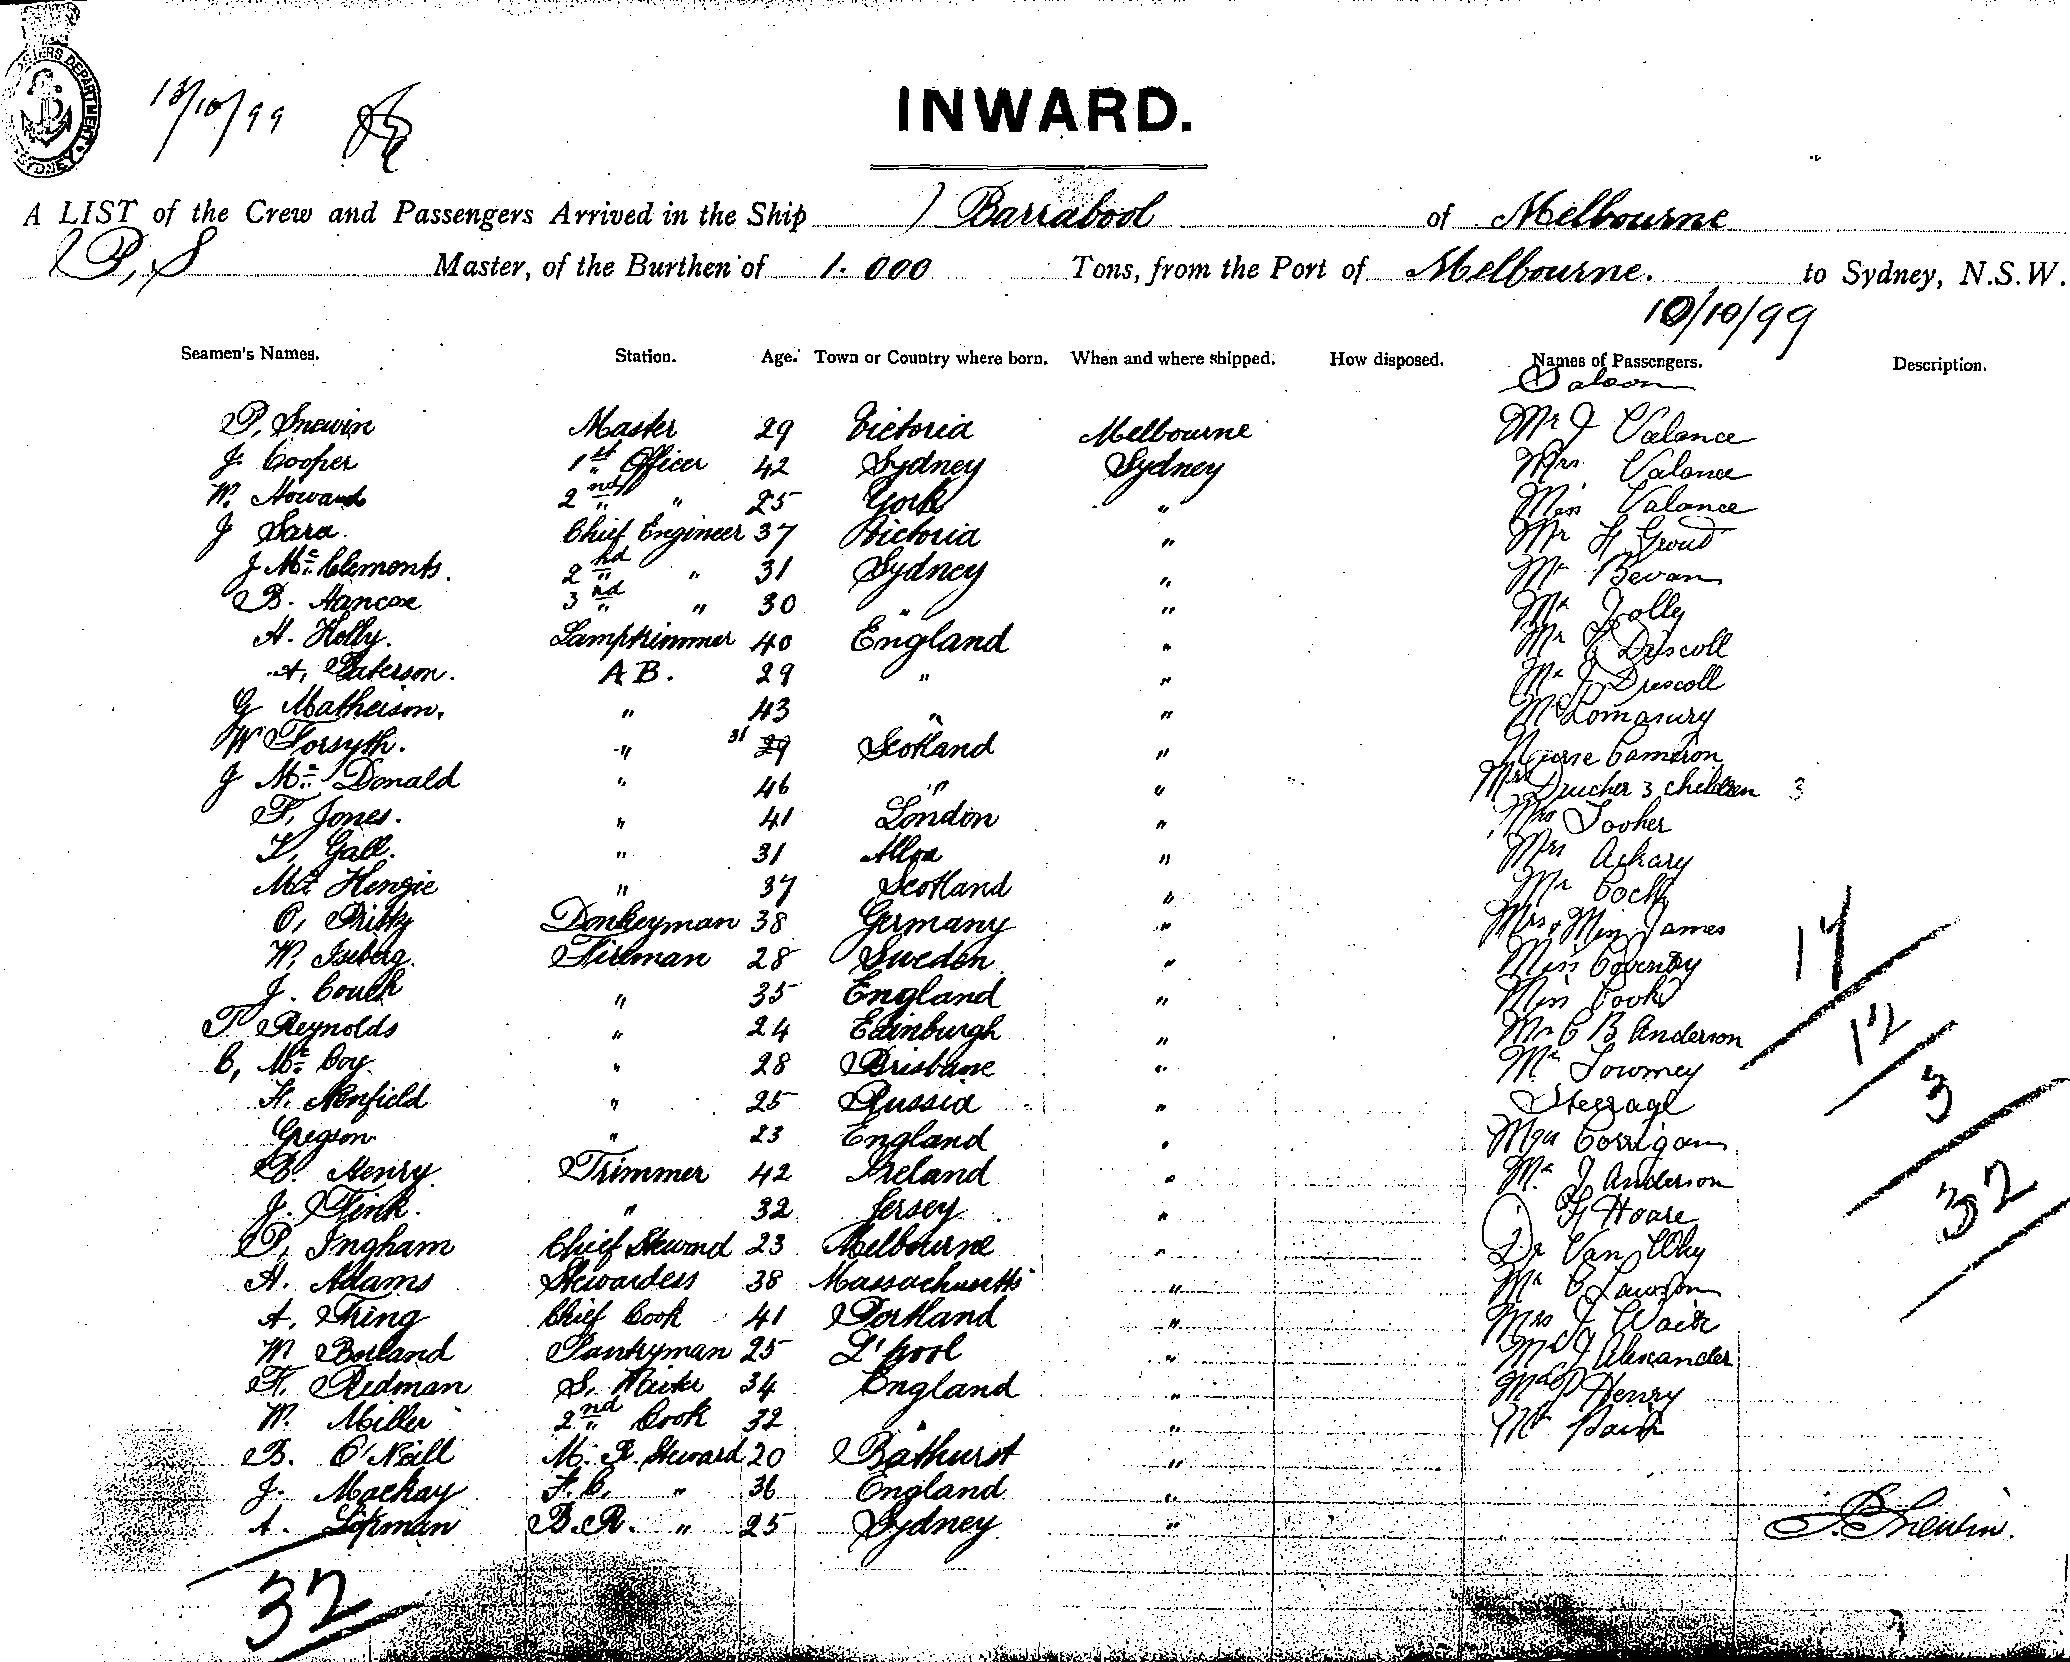 SYDNEY
13/10/99
INWARD.
A LIST of the Crew and Passengers Arrived in the Ship Barrabool of Melbourne
P, S Master, of the Burthen of 1.000 Tons, from the Port of Melbourne. to Sydney, N.S.W.
10/10/99
Seamen's Names. Station. Age. Town or Country where born. When and where shipped. How disposed. Names of Passengers. Description.
Saloon
P, Snewin Master 29 Victoria Melbourne Mr J Valance
J. Cooper 1st Officer 42 Sydney Sydney Mrs Valance
W. Howard 2nd " 25 York " Miss Valance
J Sara. Chief Engineer 37 Victoria " Mr
J Mc Clements. 2nd " 31 Sydney " Mr Bevan
B. Hancox 3rd " 30 " " Mr Jolly
H. Holly. Lamptrimmer 40 England " Mr Driscoll
A, Paterson. AB. 29 " " Mr J Driscoll
G Matheison. " 43 " "
W Forsyth. " 31 29 Scotland " Nurse Cameron
J Mc Donald " 46 " " Mrs 3 children 3
F, Jones. " 41 London " Mrs Tooher
Gall. " 31 Alloa " Mrs
Mc Hengie " 37 Scotland " Mr Cock
O, Donkeyman 38 Germany " Mrs, Miss James 17
W, Iseberg. Fireman 28 Sweden " Miss Coventry
J. Couch " 35 England " Miss Cook
T. Reynolds " 24 Edinburgh " Mr C B Anderson 12
C, Mc Coy. " 28 Brisbane " Mr Towmey
H. Nenfield " 25 Russia " Steerage 3
Gregson " 23 England " Corrigan
B. Henry. Trimmer 42 Ireland " Mr J Anderson
J. Flink. " 32 Jersey " F Hoare 32
P, Ingham Chief Steward 23 Melbourne " Dr Van
H. Adams Stewardess 38 Massachusetts " Mr C Lawson
A. Tring Chief Cook 41 Portland " Mrs J Waite
W Borland Pantryman 25 L'pool " J Alexander
F. Redman S. Waiter 34 England " Henry
W. Miller 2nd Cook 32 " " Mr
B. O'Neill M. R. Steward 20 Bathurst "
J. Mackay F.C. " 36 England "
A. Lipman B.R. " 25 Sydney " P. Snewin.
32